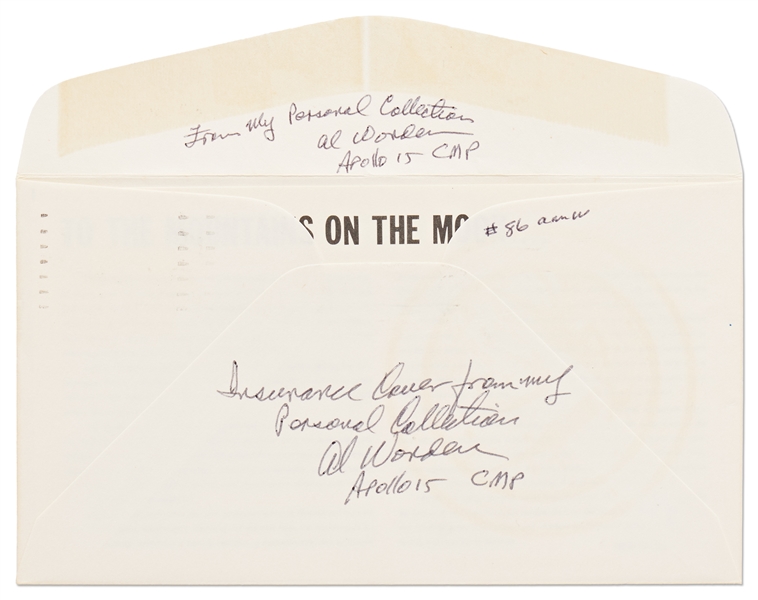 From My Personal Collection
Al Worden
Apollo 15 CMP
S ON THE MO
#86 amw
Insurance Cover from my
Personal Collection
Al Worden
Apollo 15 CMP